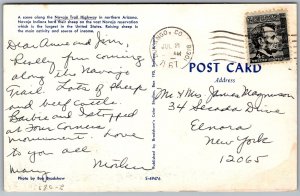 A scene along the Navajo Trail Highway in northern Arizona.
Navajo Indians herd their sheep on the vast Navajo reservation
which is the largest in the United States. Raising sheep is
the main activity and source of income.
Dear Anne and Jim,
Really fun coming
along the Navajo
Trail. Lots of sheep
and beef cattle.
Barbie and I stopped
at Four Corners
monument. Love
to you all
Photo by Bob Bradshaw
S-49476
JUL 21
AM
POST CARD
Address
Mr & Mrs James Magnuson
34 Drive
Elnora
New York
12065